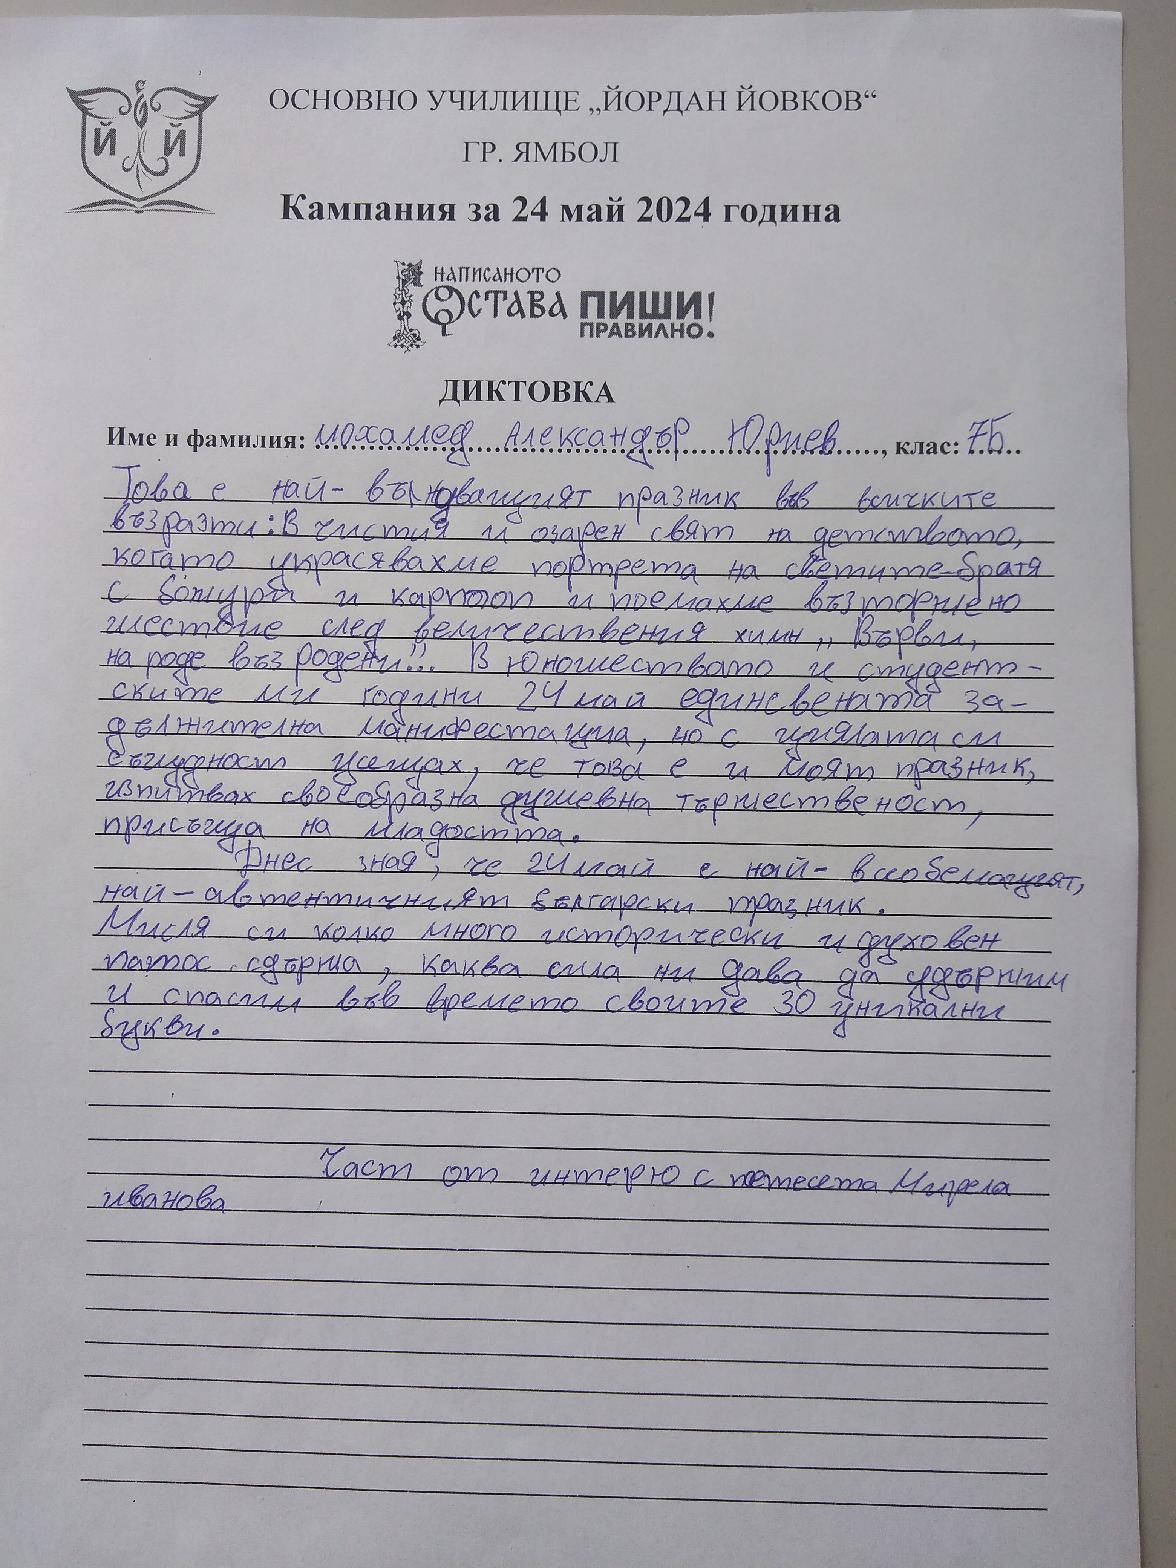 Й Й
ОСНОВНО УЧИЛИЩЕ „ЙОРДАН ЙОВКОВ“
ГР. ЯМБОЛ
Кампания за 24 май 2024 година
НАПИСАНОТО
ОСТАВА ПИШИ
ПРАВИЛНО!
ДИКТОВКА
Име и фамилия: Мохамед Александър Юриев, клас: 7Б
Това е най- празник във всичките
възразти: В чистия и озарен свят на детството,
когато украсявахме портрета на светите братя
с божури и картоп и поемахме възторжено
шествие след величествения химн „Върви,
народе възродени“... В юношеството и студент-
ските ми години 24 май единсвената за-
дължителна манифестация, но с цялата си
същност усещах, че това е и моят празник,
изпитвах своеобразна душевна тържественост,
присъща на младостта.
Днес зная, че 24 май е най-
най-автентичният български празник.
Мисля си колко много исторически и духовен
патос сдържа, каква сила ни дава да удържим
и спасим във времето своите 30 уникални
букви.
Част от интерю с Мирела
иванова